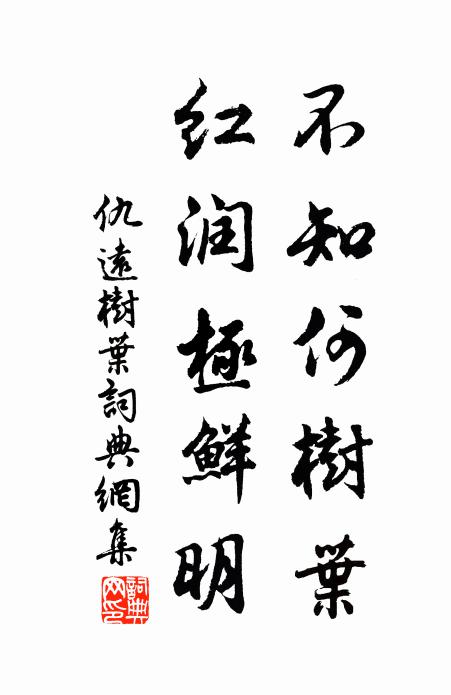 不知何樹葉
红润極鮮明
仇遠樹葉詞典網集
詞典网印